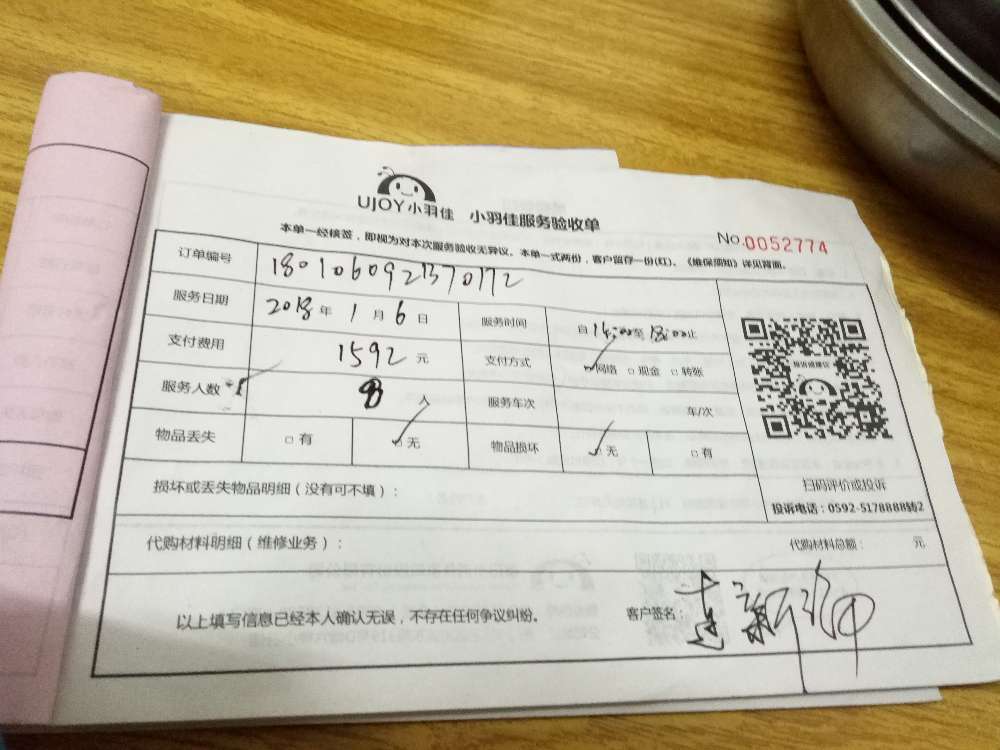 UJOY小羽佳 小羽佳服务验收单
No.0052774
本单一经核签，即视为对本次服务验收无异议。本单一式两份，客户留存一份(红)。《维保须知》详见背面。
订单编号 1801060921370172
服务日期 2018年 1月 6日 服务时间 自14:00至18:00止
支付费用 1592元 支付方式 网络 现金 转账
服务人数 8人 服务车次 车/次
物品丢失 有 无 物品损坏 无 有
投诉或建议
扫码评价或投诉
投诉电话：0592-5178888转2
损坏或丢失物品明细（没有可不填）：
代购材料明细（维修业务）： 代购材料总额： 元
以上填写信息已经本人确认无误，不存在任何争议纠纷。 客户签名：